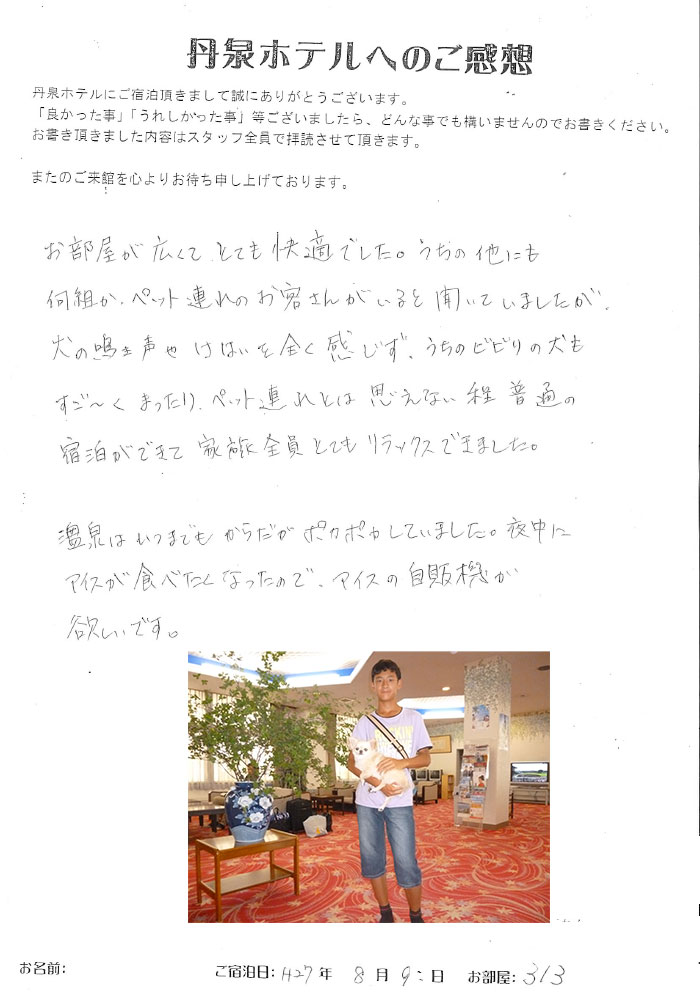 丹泉ホテルへのご感想
丹泉ホテルにご宿泊頂きまして誠にありがとうございます。
「良かった事」「うれしかった事」等ございましたら、どんな事でも構いませんのでお書きください。
お書き頂きました内容はスタッフ全員で拝読させて頂きます。
またのご来館を心よりお待ち申し上げております。
お部屋が広くて、とても快適でした。うちの他にも
何組か、ペット連れのお客さんがいると聞いていましたが、
犬の鳴き声や けはいを全く感じず、うちのビビりの犬も
すご〜く まったり、ペット連れとは思えない程 普通の
宿泊ができて 家族全員とてもリラックスできました。
温泉はいつまでも からだが ポカポカしていました。夜中に
アイスが食べたくなったので、アイスの自販機が
欲しいです。
お名前: ご宿泊日: H27年 8月 9日 お部屋: 313